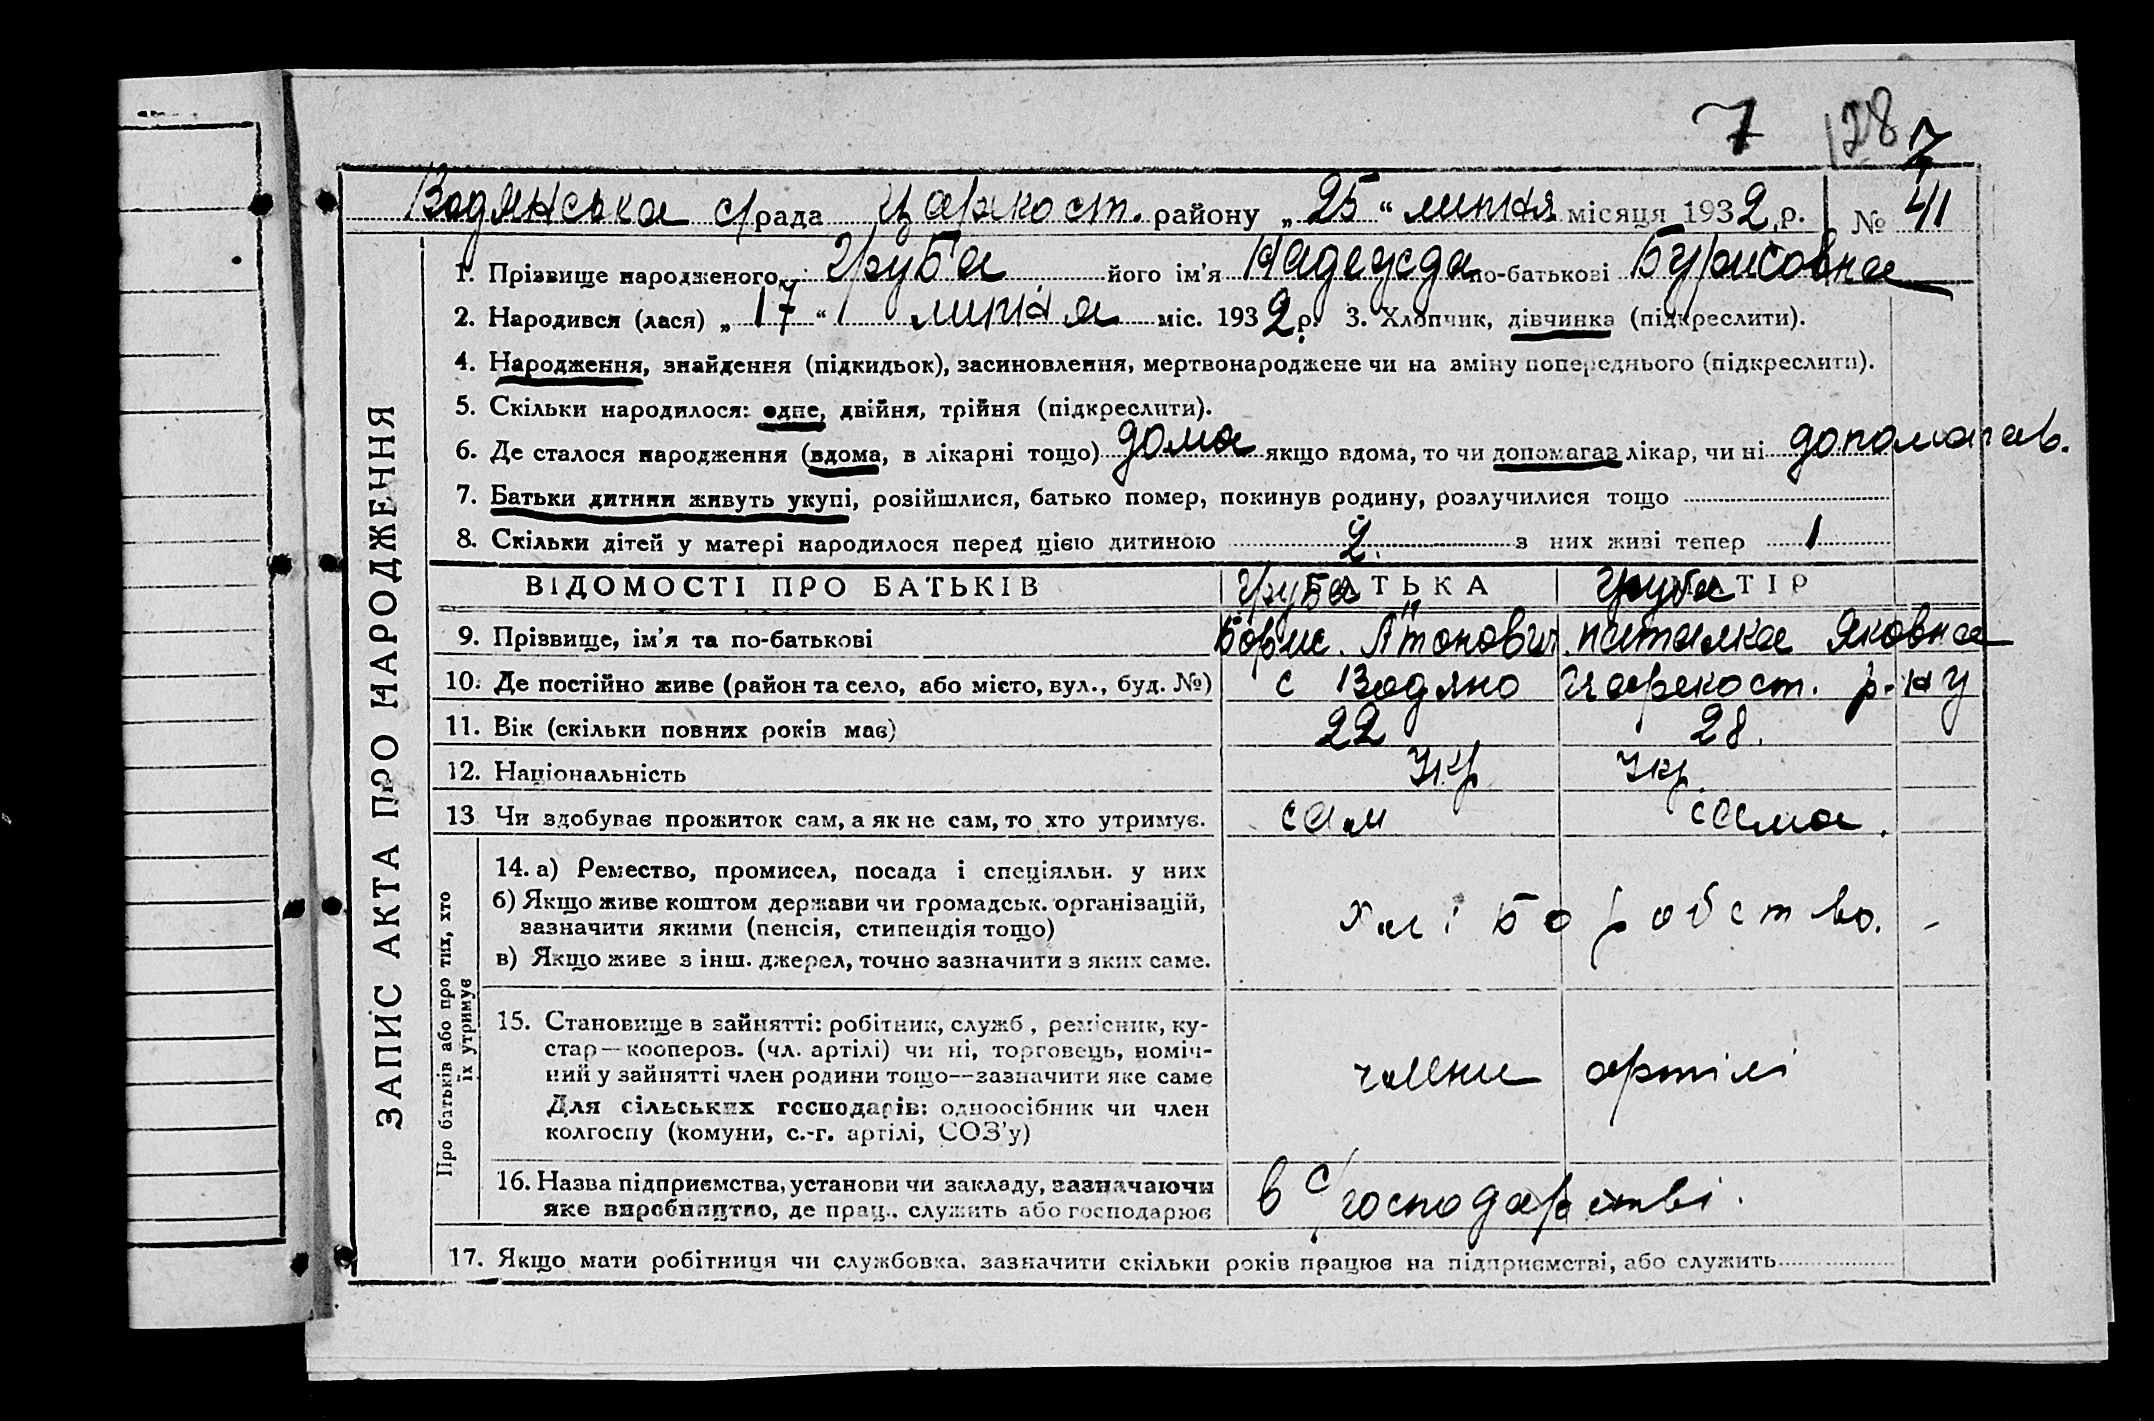 7 128 7
Водянська с/рада Царекост. району „ 25 “ липня місяця 1932 р. № 41
1. Прізвище народженого Груба його ім’я Надежда по-батькові Бурисовна
2. Народився (лася) „ 17 “ липня міс. 1932 р. 3. Хлопчик, дівчинка (підкреслити).
4. Народження, знайдення (підкидьок), засиновлення, мертвонароджене чи на зміну попереднього (підкреслити).
5. Скільки народилося: одне, двійня, трійня (підкреслити).
6. Де сталося народження (вдома, в лікарні тощо) дома якщо вдома, то чи допомагав лікар, чи ні допомагав.
7. Батьки дитини живуть укупі, розійшлися, батько помер, покинув родину, розлучилися тощо
8. Скільки дітей у матері народилося перед цією дитиною 2. з них живі тепер 1
ЗАПИС АКТА ПРО НАРОДЖЕННЯ
ВІДОМОСТІ ПРО БАТЬКІВ БАТЬКА МАТІР
Груба Груба
9. Прізвище, ім’я та по-батькові Борис. Антонович Наталка Яковна
10. Де постійно живе (район та село, або місто, вул., буд. №) с Водяно Царекост. р-ну
11. Вік (скільки повних років має) 22 28.
12. Національність Укр Укр
13 Чи здобуває прожиток сам, а як не сам, то хто утримує. сам сама.
Про батьків або про тих, хто їх утримує
14. а) Ремество, промисел, посада і спеціяльн. у них
б) Якщо живе коштом держави чи громадськ. організацій,
зазначити якими (пенсія, стипендія тощо)
хліборобство. -
в) Якщо живе з інш. джерел, точно зазначити з яких саме.
15. Становище в зайнятті: робітник, служб , ремісник, ку-
стар—кооперов. (чл. артілі) чи ні, торговець, поміч-
ний у зайнятті член родини тощо—зазначити яке саме
члени артілі
Для сільських господарів: одноосібник чи член
колгоспу (комуни, с.-г. артілі, СОЗ’у)
16. Назва підприємства, установи чи закладу, зазначаючи
яке виробництво, де прац., служить або господарює
в с/господарстві.
17. Якщо мати робітниця чи службовка, зазначити скільки років працює на підприємстві, або служить